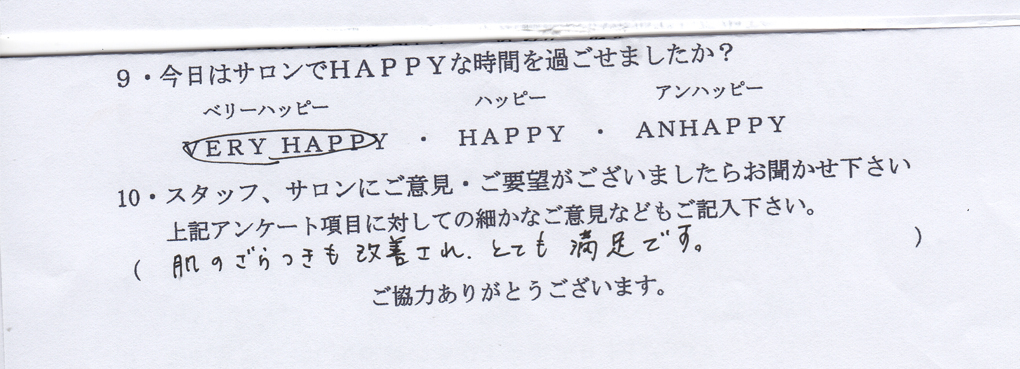 9・今日はサロンでHAPPYな時間を過ごせましたか？
ベリーハッピー ハッピー アンハッピー
VERY HAPPY ・ HAPPY ・ ANHAPPY
10・スタッフ、サロンにご意見・ご要望がございましたらお聞かせ下さい
上記アンケート項目に対しての細かなご意見などもご記入下さい。
( 肌のざらつきも改善され、とても満足です。 )
ご協力ありがとうございます。